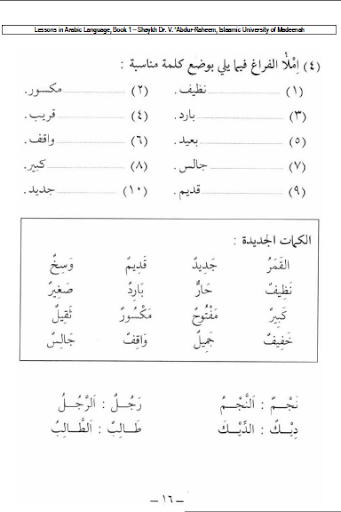 Lessons in Arabic Language, Book 1 – Shaykh Dr. V. 'Abdur-Raheem, Islaamic University of Madeenah
(٤) اِمْلَأْ الفراغ فيما يلي بوضع كلمة مناسبة :
(١) ............ نظيف. (٢) ............ مكسور.
(٣) ............ بارد. (٤) ............ قريب.
(٥) ............ بعيد. (٦) ............ واقف.
(٧) ............ جالس. (٨) ............ كبير.
(٩) ............ قديم. (١٠) ............ جديد.
الكلمات الجديدة :
القَمَرُ جَدِيدٌ قَدِيمٌ وَسِخٌ
نَظِيفٌ حَارٌّ بَارِدٌ صَغِيرٌ
كَبِيرٌ مَفْتُوحٌ مَكْسُورٌ ثَقِيلٌ
خَفِيفٌ جَمِيلٌ وَاقِفٌ جَالِسٌ
نَجْـمٌ : اَلنَّجْـمُ رَجُـلٌ : اَلرَّجُـلُ
دِيْـكٌ : اَلدِّيْـكُ طَـالِبٌ : اَلطَّـالِبُ
– ١٦ –